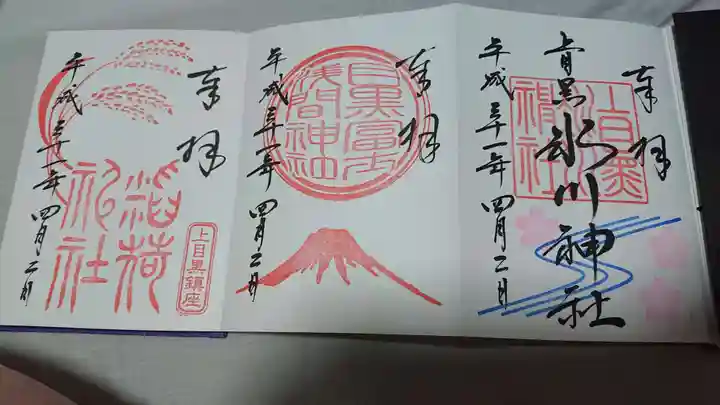 奉拝
上目黒氷川神社
上目黒氷川神社
平成三十一年四月二日
奉拝
目黒富士
浅間神社
平成三十一年四月二日
奉拝
稲荷
社
上目黒鎮座
平成三十一年四月二日